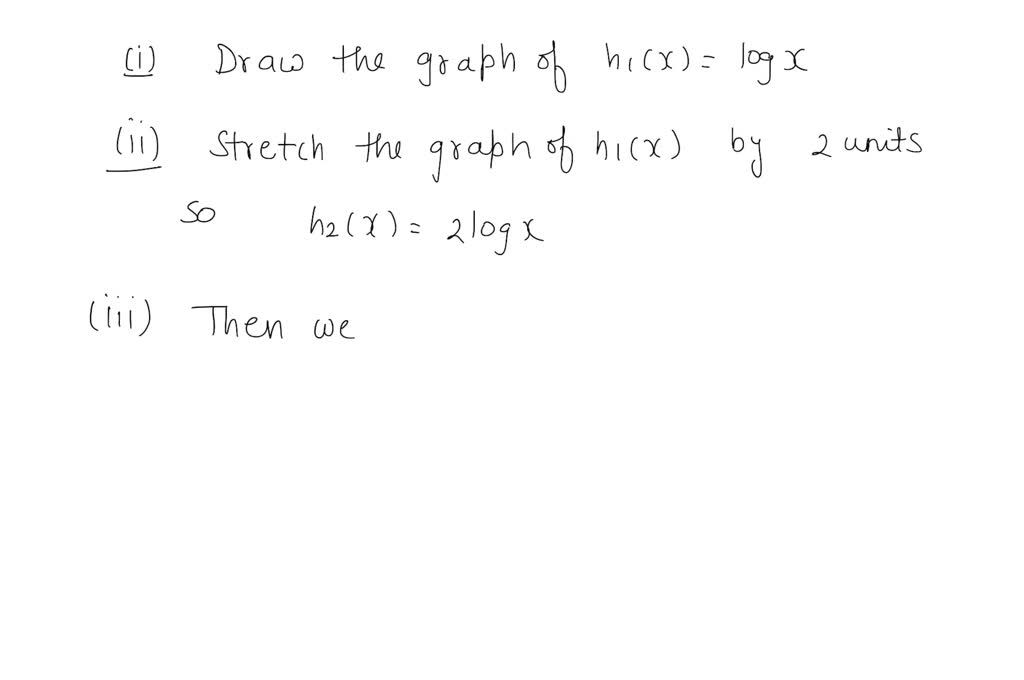 (i) Draw the graph of h1(x) = log x
(ii) Stretch the graph of h1(x) by 2 units
so h2(x) = 2log x
(iii) Then we